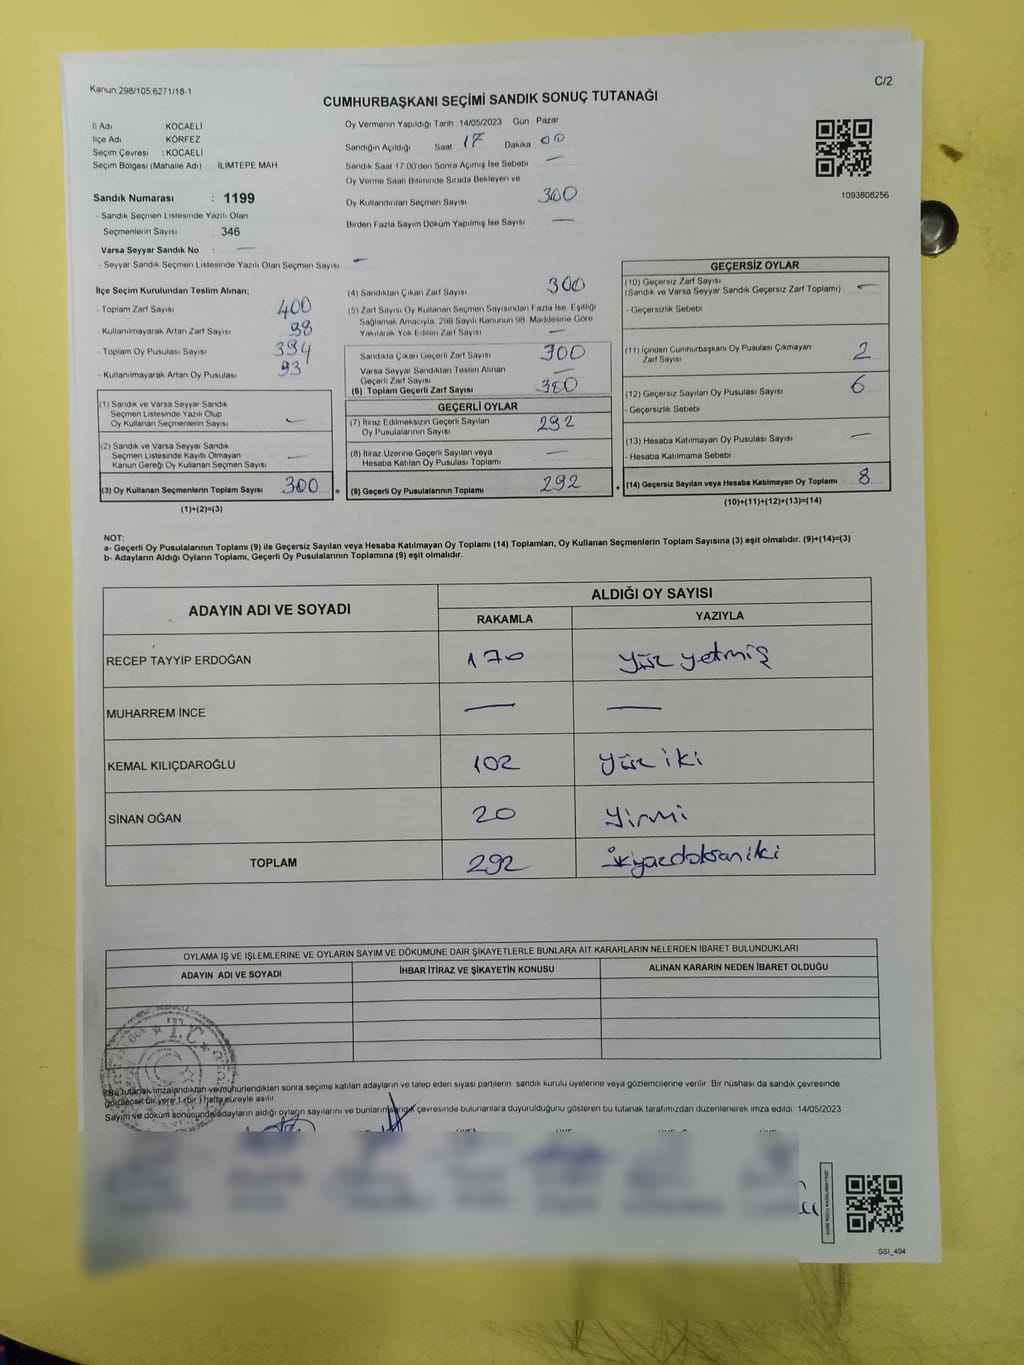 Kanun 298/105,6271/18-1
C/2
CUMHURBAŞKANI SEÇİMİ SANDIK SONUÇ TUTANAĞI
İl Adı KOCAELİ
İlçe Adı KÖRFEZ
Seçim Çevresi : KOCAELİ
Seçim Bölgesi (Mahalle Adı) : İLİMTEPE MAH
Sandık Numarası : 1199
- Sandık Seçmen Listesinde Yazılı Olan
Seçmenlerin Sayısı : 346
Varsa Seyyar Sandık No : —
- Seyyar Sandık Seçmen Listesinde Yazılı Olan Seçmen Sayısı —
Oy Vermenin Yapıldığı Tarih 14/05/2023 Gün Pazar
Sandığın Açıldığı Saat 17 Dakika 00
Sandık Saat 17.00'den Sonra Açımış İse Sebebi —
Oy Verme Saati Bitiminde Sırada Bekleyen ve
Oy Kullandırılan Seçmen Sayısı 300
Birden Fazla Sayım Döküm Yapılmış İse Sayısı —
1093808256
İlçe Seçim Kurulundan Teslim Alınan;
- Toplam Zarf Sayısı 400
- Kullanılmayarak Artan Zarf Sayısı 98
- Toplam Oy Pusulası Sayısı 394
- Kullanılmayarak Artan Oy Pusulası 93
(1) Sandık ve Varsa Seyyar Sandık
Seçmen Listesinde Yazılı Olup
Oy Kullanan Seçmenlerin Sayısı —
(2) Sandık ve Varsa Seyyar Sandık
Seçmen Listesinde Kayıtlı Olmayan
Kanun Gereği Oy Kullanan Seçmen Sayısı —
(3) Oy Kullanan Seçmenlerin Toplam Sayısı 300 =
(1)+(2)=(3)
(4) Sandıktan Çıkan Zarf Sayısı 300
(5) Zarf Sayısı Oy Kullanan Seçmen Sayısından Fazla İse, Eşitliği
Sağlamak Amacıyla, 298 Sayılı Kanunun 98. Maddesine Göre
Yakılarak Yok Edilen Zarf Sayısı —
Sandıkta Çıkan Geçerli Zarf Sayısı 300
Varsa Seyyar Sandıktan Teslim Alınan
Geçerli Zarf Sayısı —
(6) Toplam Geçerli Zarf Sayısı 300
GEÇERLİ OYLAR
(7) İtiraz Edilmeksizin Geçerli Sayılan
Oy Pusulalarının Sayısı 292
(8) İtiraz Üzerine Geçerli Sayılan veya
Hesaba Katılan Oy Pusulası Toplamı —
(9) Geçerli Oy Pusulalarının Toplamı 292 +
GEÇERSİZ OYLAR
(10) Geçersiz Zarf Sayısı
(Sandık ve Varsa Seyyar Sandık Geçersiz Zarf Toplamı) —
- Geçersizlik Sebebi
(11) İçinden Cumhurbaşkanı Oy Pusulası Çıkmayan
Zarf Sayısı 2
(12) Geçersiz Sayılan Oy Pusulası Sayısı 6
- Geçersizlik Sebebi
(13) Hesaba Katılmayan Oy Pusulası Sayısı —
- Hesaba Katılmama Sebebi
(14) Geçersiz Sayılan veya Hesaba Katılmayan Oy Toplamı 8
(10)+(11)+(12)+(13)=(14)
NOT:
a- Geçerli Oy Pusulalarının Toplamı (9) ile Geçersiz Sayılan veya Hesaba Katılmayan Oy Toplamı (14) Toplamları, Oy Kullanan Seçmenlerin Toplam Sayısına (3) eşit olmalıdır. (9)+(14)=(3)
b- Adayların Aldığı Oyların Toplamı, Geçerli Oy Pusulalarının Toplamına (9) eşit olmalıdır.
ADAYIN ADI VE SOYADI
ALDIĞI OY SAYISI
RAKAMLA YAZIYLA
RECEP TAYYİP ERDOĞAN 170 yüz yetmiş
MUHARREM İNCE — —
KEMAL KILIÇDAROĞLU 102 yüz iki
SİNAN OĞAN 20 yirmi
TOPLAM 292 ikiyüzdoksaniki
OYLAMA İŞ VE İŞLEMLERİNE VE OYLARIN SAYIM VE DÖKÜMÜNE DAİR ŞİKAYETLERLE BUNLARA AİT KARARLARIN NELERDEN İBARET BULUNDUKLARI
ADAYIN ADI VE SOYADI İHBAR İTİRAZ VE ŞİKAYETİN KONUSU ALINAN KARARIN NEDEN İBARET OLDUĞU
T.C.
Bu tutanak imzalandıktan ve mühürlendikten sonra seçime katılan adayların ve talep eden siyasi partilerin sandık kurulu üyelerine veya gözlemcilerine verilir. Bir nüshası da sandık çevresinde
görülecek bir yere 1 (bir ) hafta süreyle asılır.
Sayım ve döküm sonucunda adayların aldığı oyların sayılarını ve bunların sandık çevresinde bulunanlara duyurulduğunu gösteren bu tutanak tarafımızdan düzenlenerek imza edildi. 14/05/2023
SSI_404